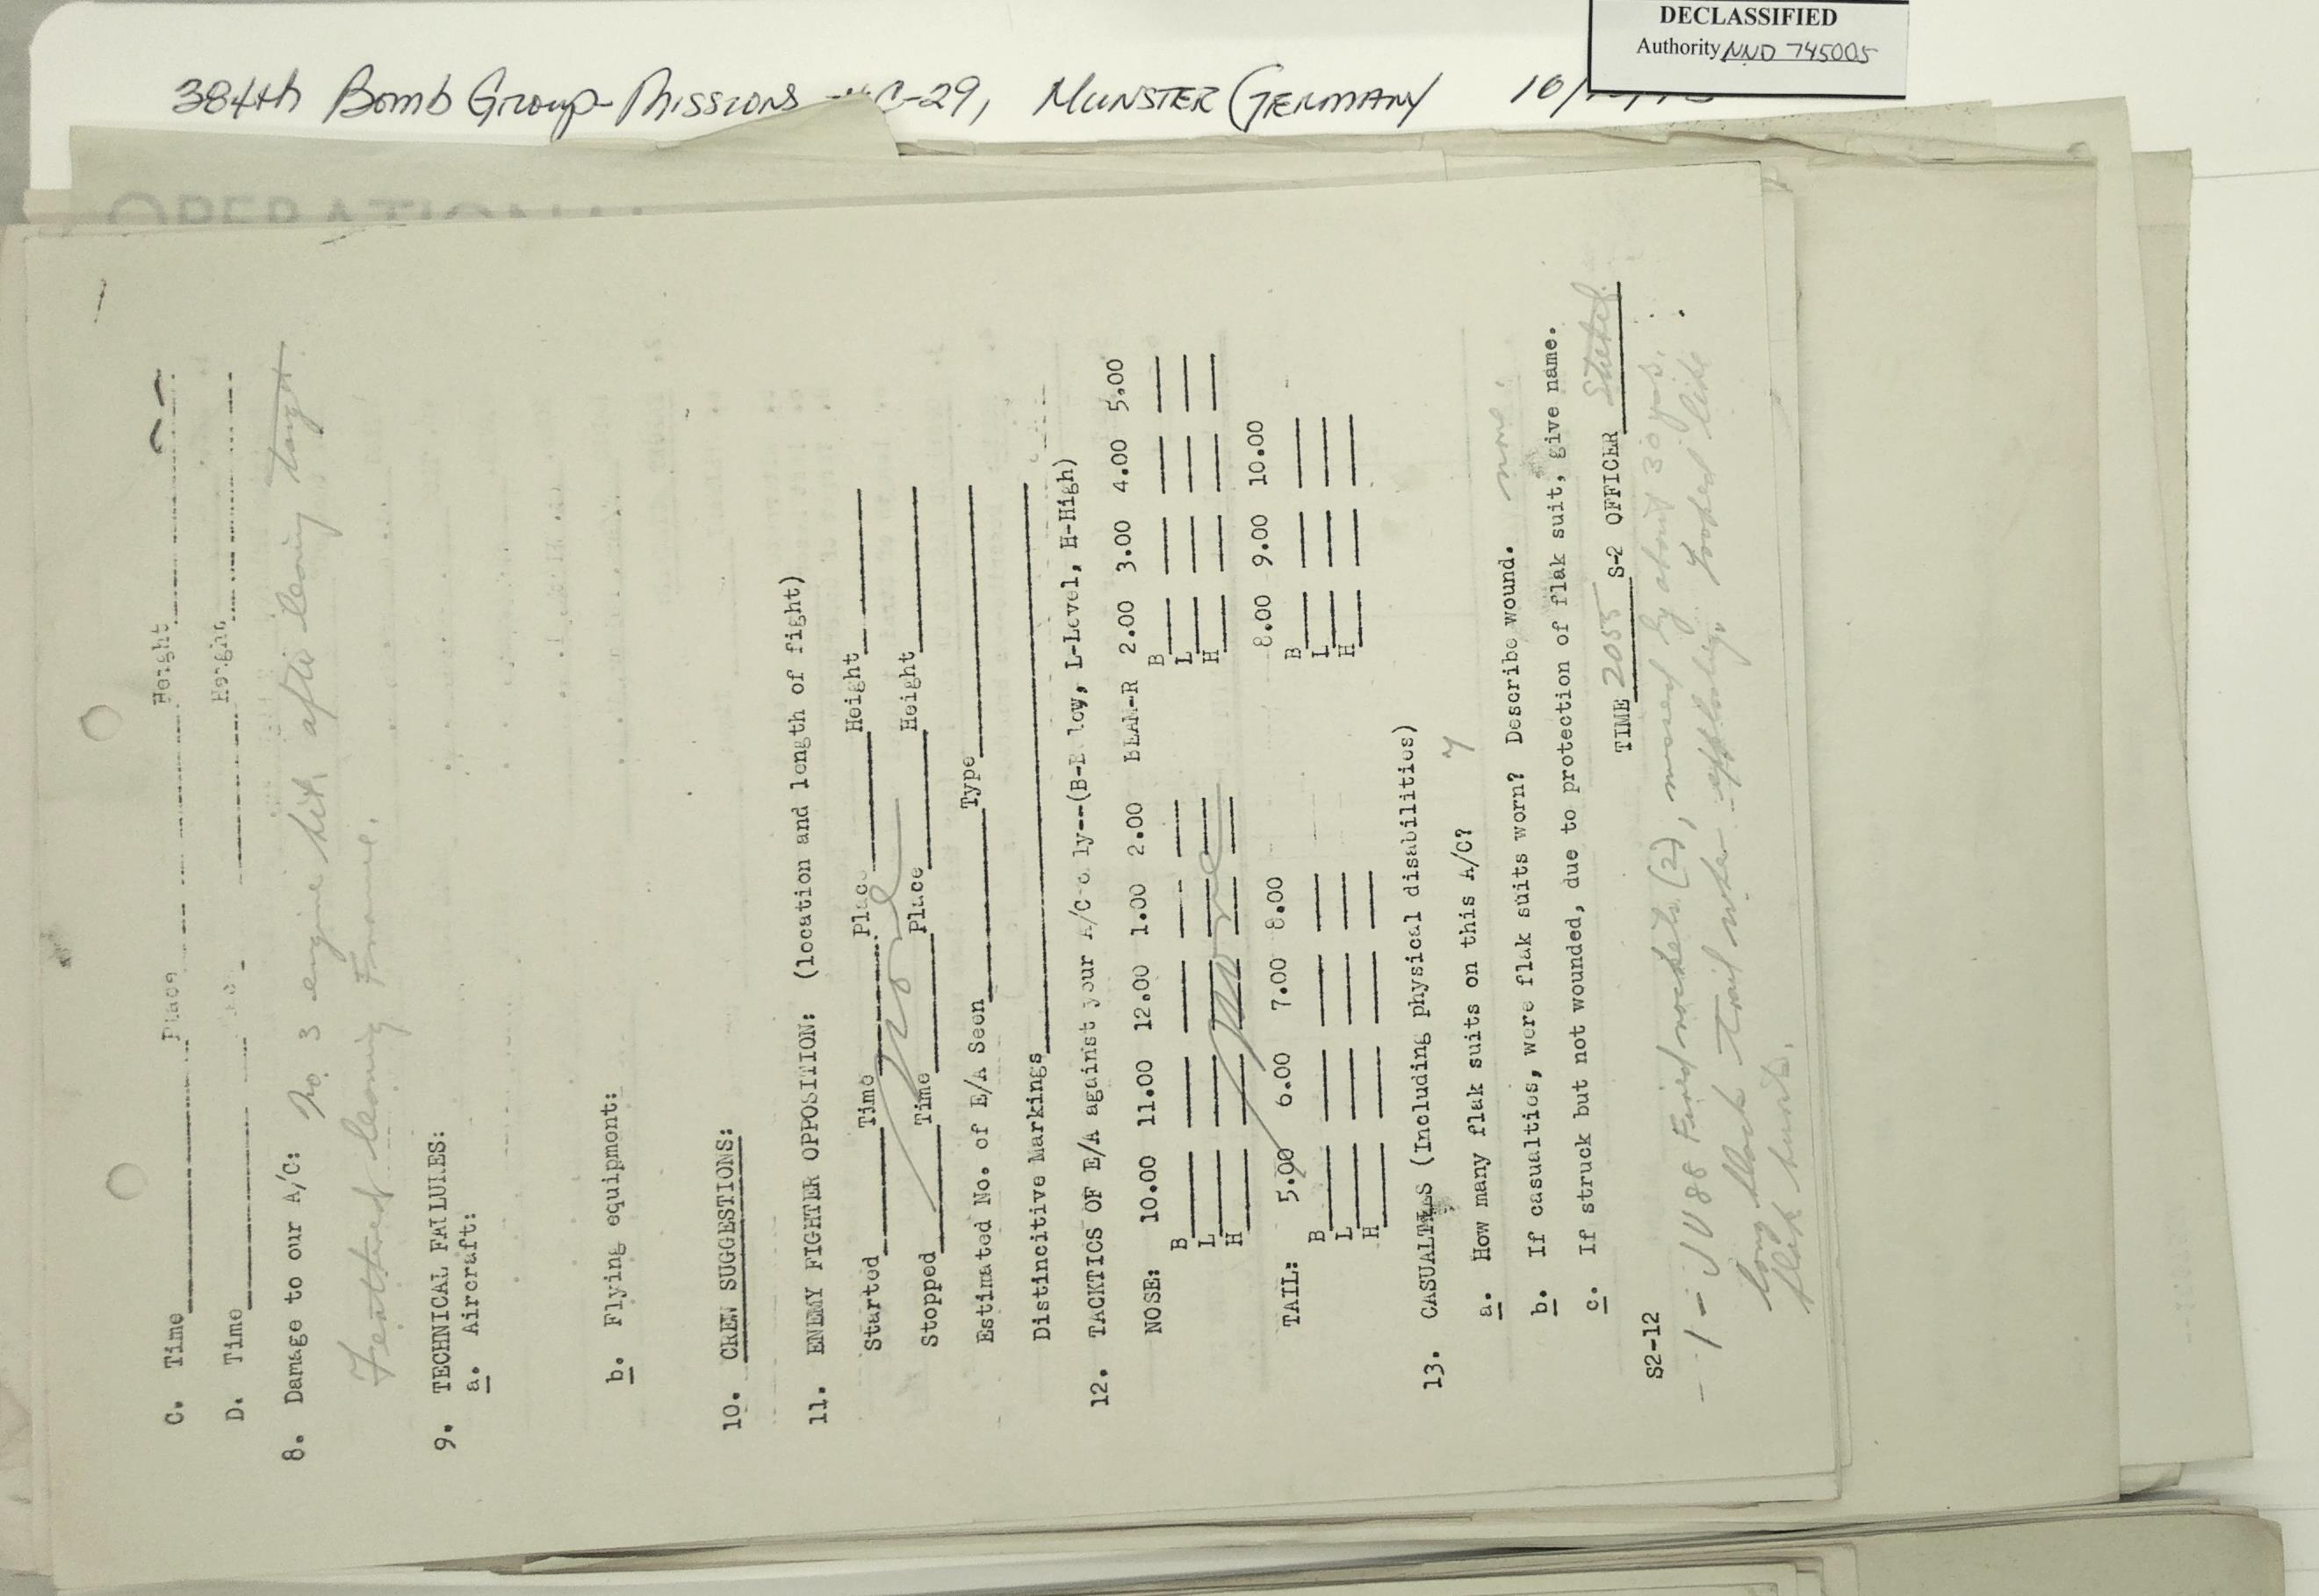 DECLASSIFIED
Authority NND 745005
384th Bomb Group-Missions C-29, MUNSTER GERMANY 10/
OPERATIONAL
C. Time Place Height
D. Time Height
8. Damage to our A/C: No. 3 engine hit after leaving target.
Feathered leaving France.
9. TECHNICAL FAILURES:
a. Aircraft:
b. Flying equipment:
10. CREW SUGGESTIONS:
11. ENEMY FIGHTER OPPOSITION: (location and length of fight)
Started Time Place Height
None
Stopped Time Place Height
Estimated No. of E/A Seen Type
Distincitive Markings
12. TACKTICS OF E/A against your A/C only--(B-Below, L-Level, H-High)
NOSE: 10.00 11.00 12.00 1.00 2.00 BEAM-R 2.00 3.00 4.00 5.00
B B
L L
H H
None
TAIL: 5.00 6.00 7.00 8.00 8.00 9.00 10.00
B B
L L
H H
13. CASUALTIES (Including physical disabilities)
a. How many flak suits on this A/C? 7
b. If casualties, were flak suits worn? Describe wound. none
c. If struck but not wounded, due to protection of flak suit, give name.
TIME 2055 S-2 OFFICER
S2-12
- 1 - JU 88 Fired rockets (2), missed by about 30 yds.
long black trail when exploding. Looked like
flak bursts.